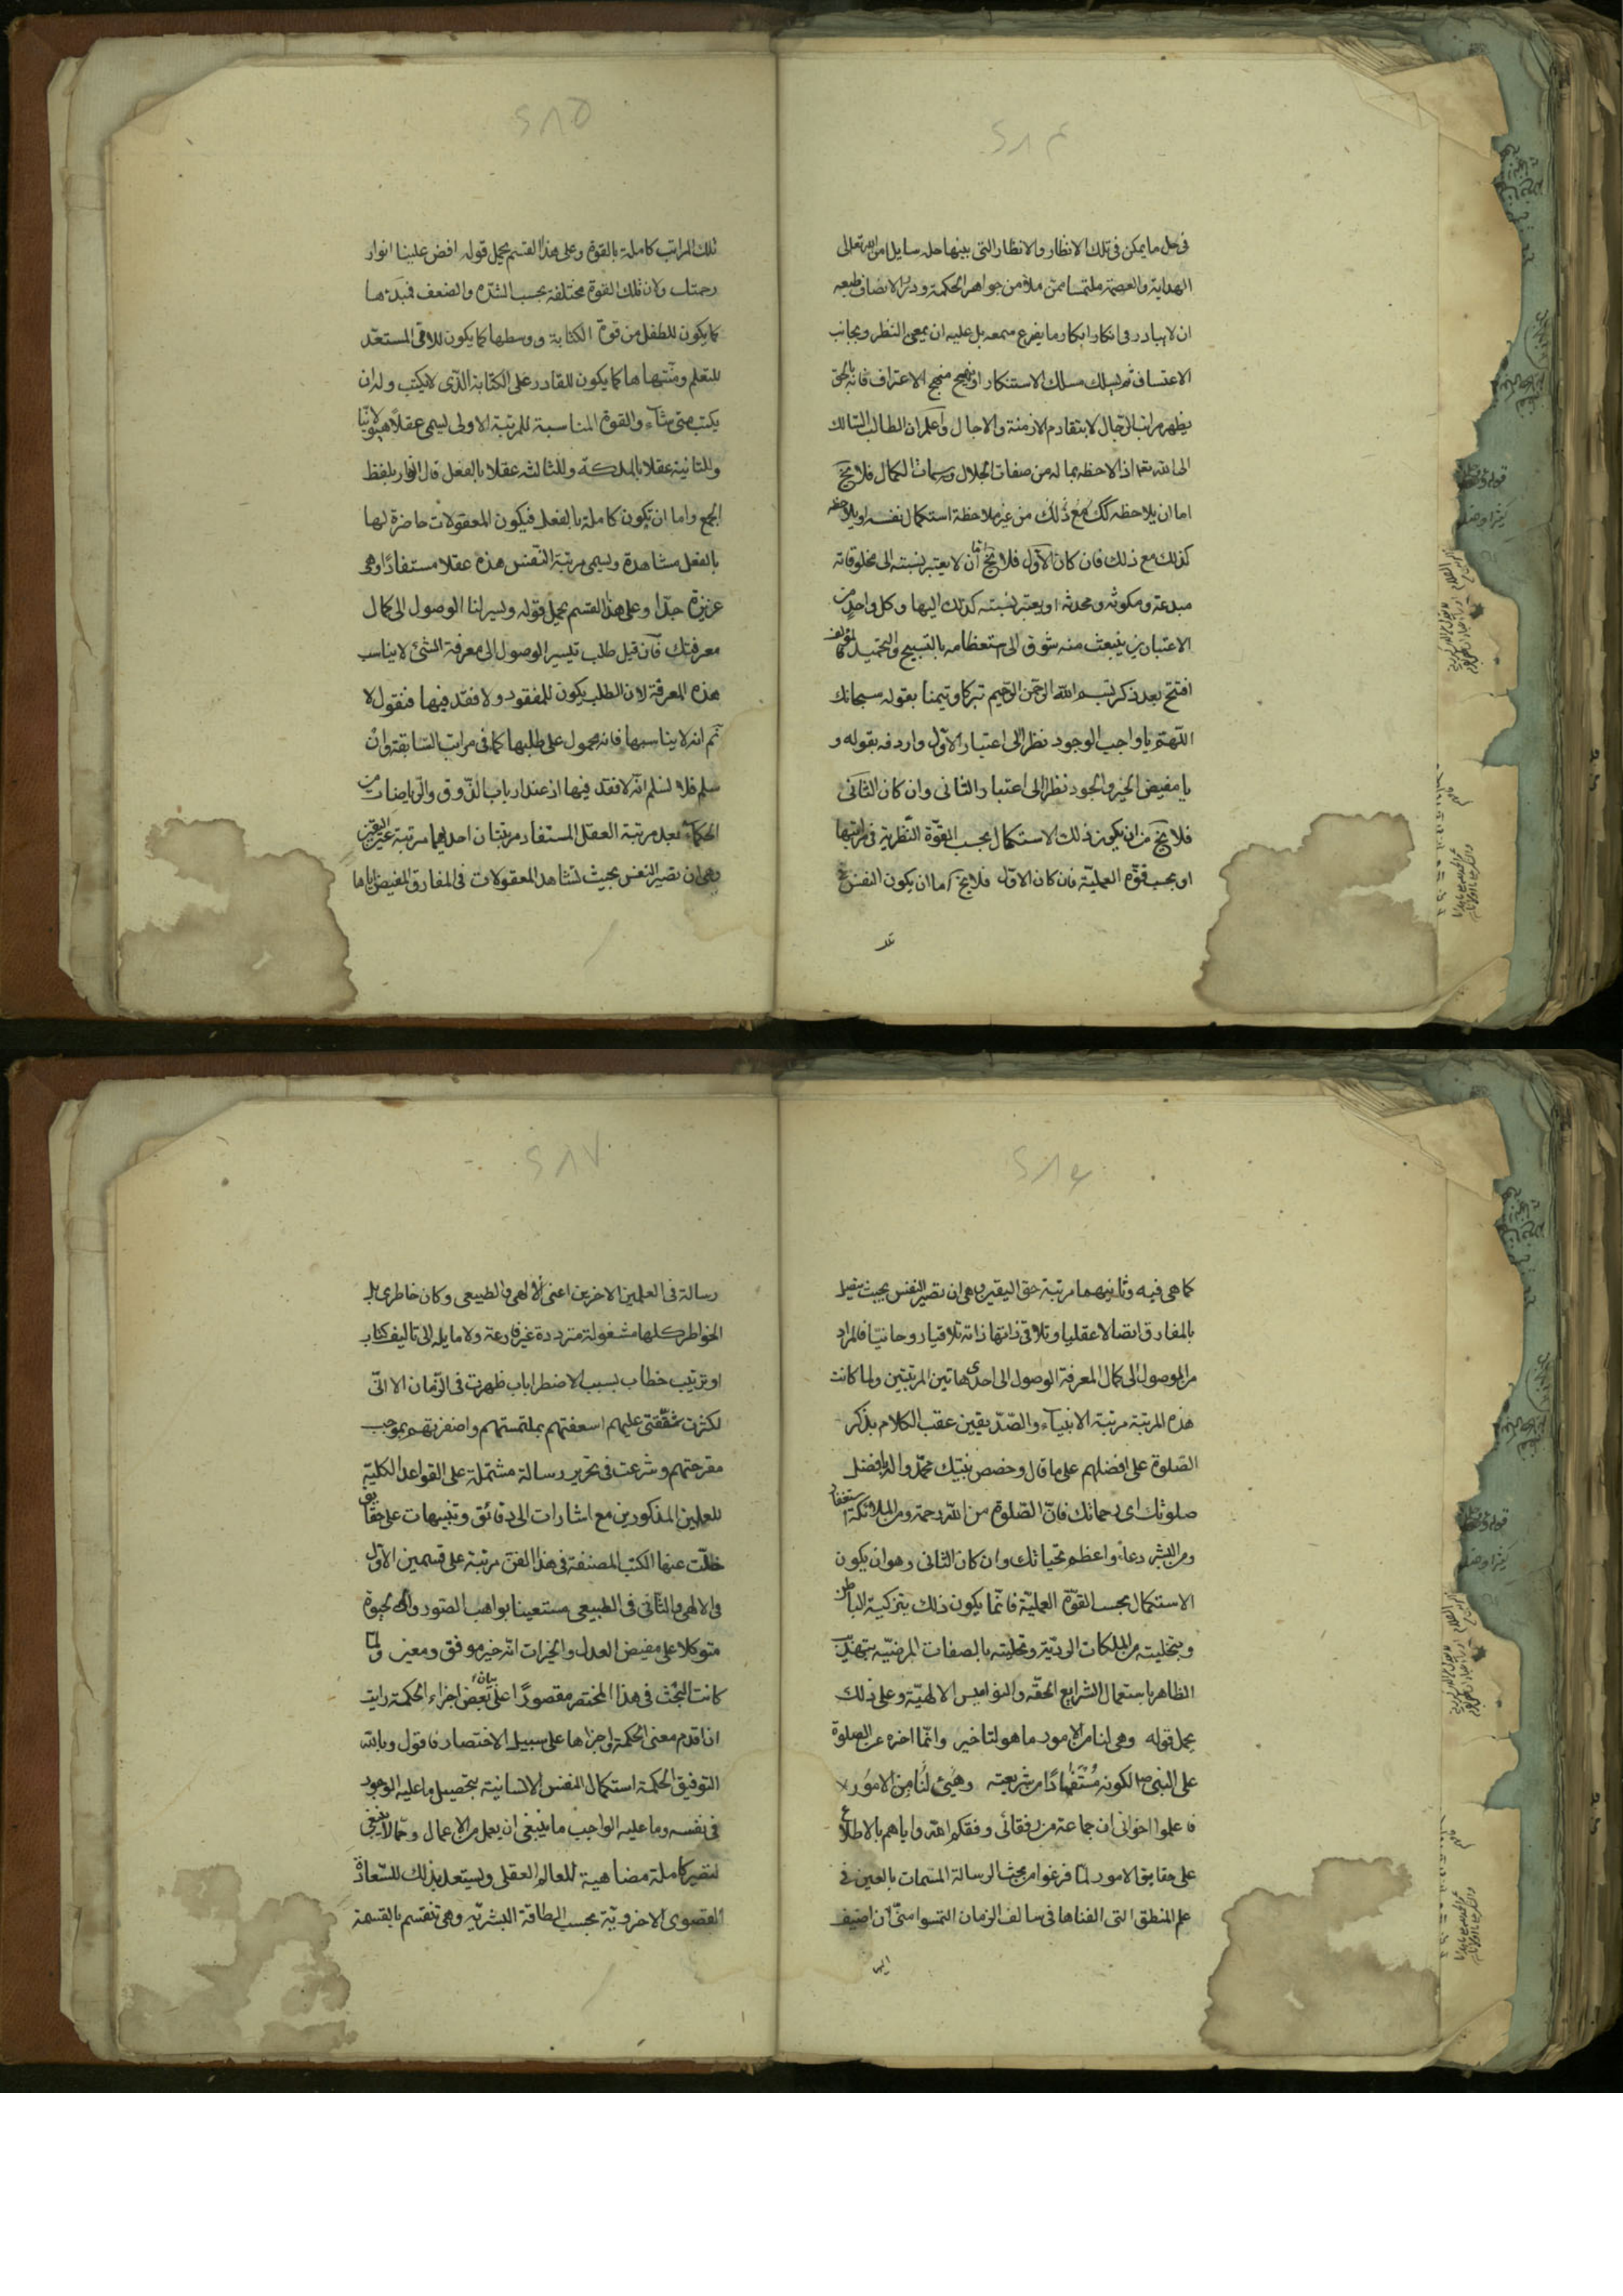 ٢٨٤
فى حل ما يمكن فى تلك الانظار والانظار التى بينها حله سايلا من الله تعالى
الهداية والعصمة ملتمسا ممن ملأ من جواهر الحكمة ودرر الانصاف طبعه
ان لا يبادر فى انكار ابكار ما يقرع سمعه بل عليه ان يمعن النظر ويجانب
الاعتساف ثم ليسلك مسلك الاستنكار او ينهج منهج الاعتراف فانه بالحق
يظهر مراتب الرجال لا بتقادم الازمنة والاجال واعلم ان الطالب السالك
الى الله تعا اذا لاحظه بما له من صفات الجلال وسمات الكمال فلا يخ
اما ان يلاحظه كك مع ذلك من غير ملاحظة استكمال نفسه او يلاحظه
كذلك مع ذلك فان كان الاول فلا يخ اما ان لا يعتبر نسبته الى مخلوقاته
مبدعة ومكونه ومحدثه او يعتبر نسبته كذلك اليها وكل واحد من
الاعتبارين ينبعث منه شوق الى استعظامه بالتسبيح والتحميد المؤلف لما
افتتح بعد ذكر بسم الله الرحمن الرحيم تبركا وتيمنا بقوله سبحانك
اللهم يا واجب الوجود نظرا الى اعتبار الاول واردفه بقوله و
يا مفيض الخير والجود نظرا الى اعتبار الثانى وان كان الثانى
فلا يخ من ان يكون ذلك الاستكمال بحسب القوة النظرية فى مراتبها
او بحسب قوة العملية فان كان الاول فلا يخ اما ان يكون النفس فى
٢٨٥
تلك المراتب كاملة بالقوة وعلى هذا القسم يحمل قوله افض علينا انوار
رحمتك ولان تلك القوة مختلفة بحسب الشدة والضعف فمبدءها
كما يكون للطفل من قوة الكتابة ووسطها كما يكون للامى المستعد
للتعلم ومنتهاها كما يكون للقادر على الكتابة الذى لا يكتب وله ان
يكتب متى شاء والقوة المناسبة للمرتبة الاولى ليسمى عقلا هيولانيا
وللثانية عقلا بالملكة وللثالثه عقلا بالفعل قال انوار بلفظ
الجمع واما ان تكون كاملة بالفعل فيكون المعقولات حاضرة لها
بالفعل مشاهدة ويسمى مرتبة النفس هذه عقلا مستفادا وهى
عزيزة جدا وعلى هذا القسم يحمل قوله ويسر لنا الوصول الى كمال
معرفتك فان قيل طلب تيسير الوصول الى معرفة الشئ لا يناسب
هذه المعرفة لان الطلب يكون للمفقود ولا فقد فيها فنقول لا
ثم انه لا يناسبها فانه محمول على طلبها كما فى مراتب السابقة وان
سلم فلا نسلم انه لا فقد فيها اذ عند ارباب الذوق والرياضات من
الحكماء بعد مرتبة العقل المستفاد مرتبتان احديهما مرتبة عين اليقين
وهى ان تصير النفس بحيث تشاهد المعقولات فى المفارق المفيض اياها
٢٨٦
كما هى فيه وثانيهما مرتبة حق اليقين وهى ان تصير النفس بحيث يتصل
بالمفارق اتصالا عقليا وتلاقى ذاتها ذاته تلاقيا روحانيا فالمراد
من الوصول الى كمال المعرفة الوصول الى احدى هاتين المرتبتين ولما كانت
هذه المرتبة مرتبة الانبياء والصديقين عقب الكلام بذكر
الصلوة على افضلهم على ما قال وخصص نبيك محمد واله بافضل
صلوتك اى رحماتك فان الصلوة من الله رحمة ومن الملائكة استغفار
ومن البشر دعاء واعظم تحياتك وان كان الثانى وهو ان يكون
الاستكمال بحسب القوة العملية فانما يكون ذلك بتزكية الباطن
وبتخليته من الملكات الردية وتحليته بالصفات المرضيه بتهذيب
الظاهر باستعمال الشرايع الحقه والنواميس الالهية وعلى ذلك
يحمل قوله وهى لنا من الامور ما هو لنا خير وانما اخره عن الصلوة
على النبى ص لكونه مستفادا من شريعته وهيئ لنا من الامور
فاعلموا اخوانى ان جماعة من رفقائى وفقكم الله واياهم بالاطلاع
على حقايق الامور لما فرغوا من بحث الرسالة المسمات بالعين فى
علم المنطق التى الفناها فى سالف الزمان التمسوا منى ان اضيف
اليها
٢٨٧
رسالة فى العلمين الاخرين اعنى الالهى والطبيعى وكان خاطرى بل
الخواطر كلها مشغولة مترددة غير فارغة ولا مايله الى تاليف كتاب
او ترتيب خطاب بسبب الاضطراباب ظهرت فى الزمان الا انى
لكثرت شفقتى عليهم اسعفتهم بملتمستهم واضفرتهم بموجب
مقرحتهم وشرعت فى تحرير رسالة مشتملة على القواعد الكلية
للعلمين المذكورين مع اشارات الى دقائق وتنبيهات على حقايق
خلت عنها الكتب المصنفة فى هذا الفن مرتبة على قسمين الاول
فى الالهى والثانى فى الطبيعى مستعينا بواهب الصور والحيوة
متوكلا على مفيض العدل والخيرات انه خير موفق ومعين ولما
كانت البحث فى هذا المختصر مقصورا على بيان بعض اجزاء الحكمة رايت
ان اقدم معنى الحكمة واجزاها على سبيل الاختصار فاقول وبالله
التوفيق الحكمة استكمال النفس الانسانية بتحصيل ما عليه الوجود
فى نفسه وما عليه الواجب ما ينبغى ان يعمل من الاعمال ومما لا ينبغى
لتصير كاملة مضاهية للعالم العقلى ويستعد بذلك للسعادة
القصوى الاخروية بحسب الطاقة البشرية وهى تنقسم بالقسمة